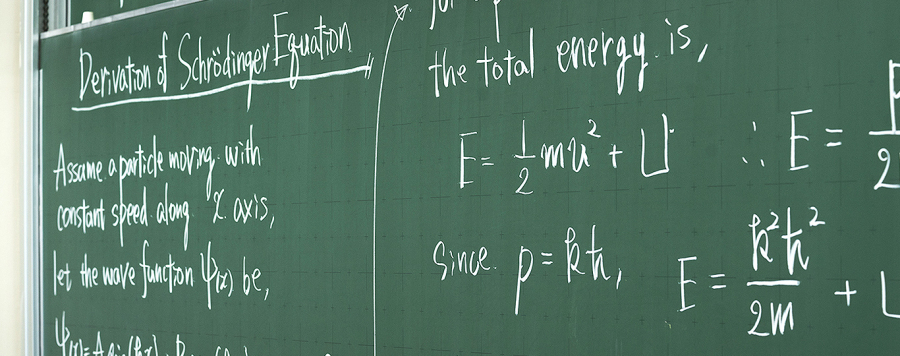 Derivation of Schrödinger Equation
Assume a particle moving with
constant speed along x axis,
let the wave function ψ(x) be,
the total energy is,
E = 1/2 mu² + U ∴ E =
Since p = kħ, E = k²ħ²/2m +